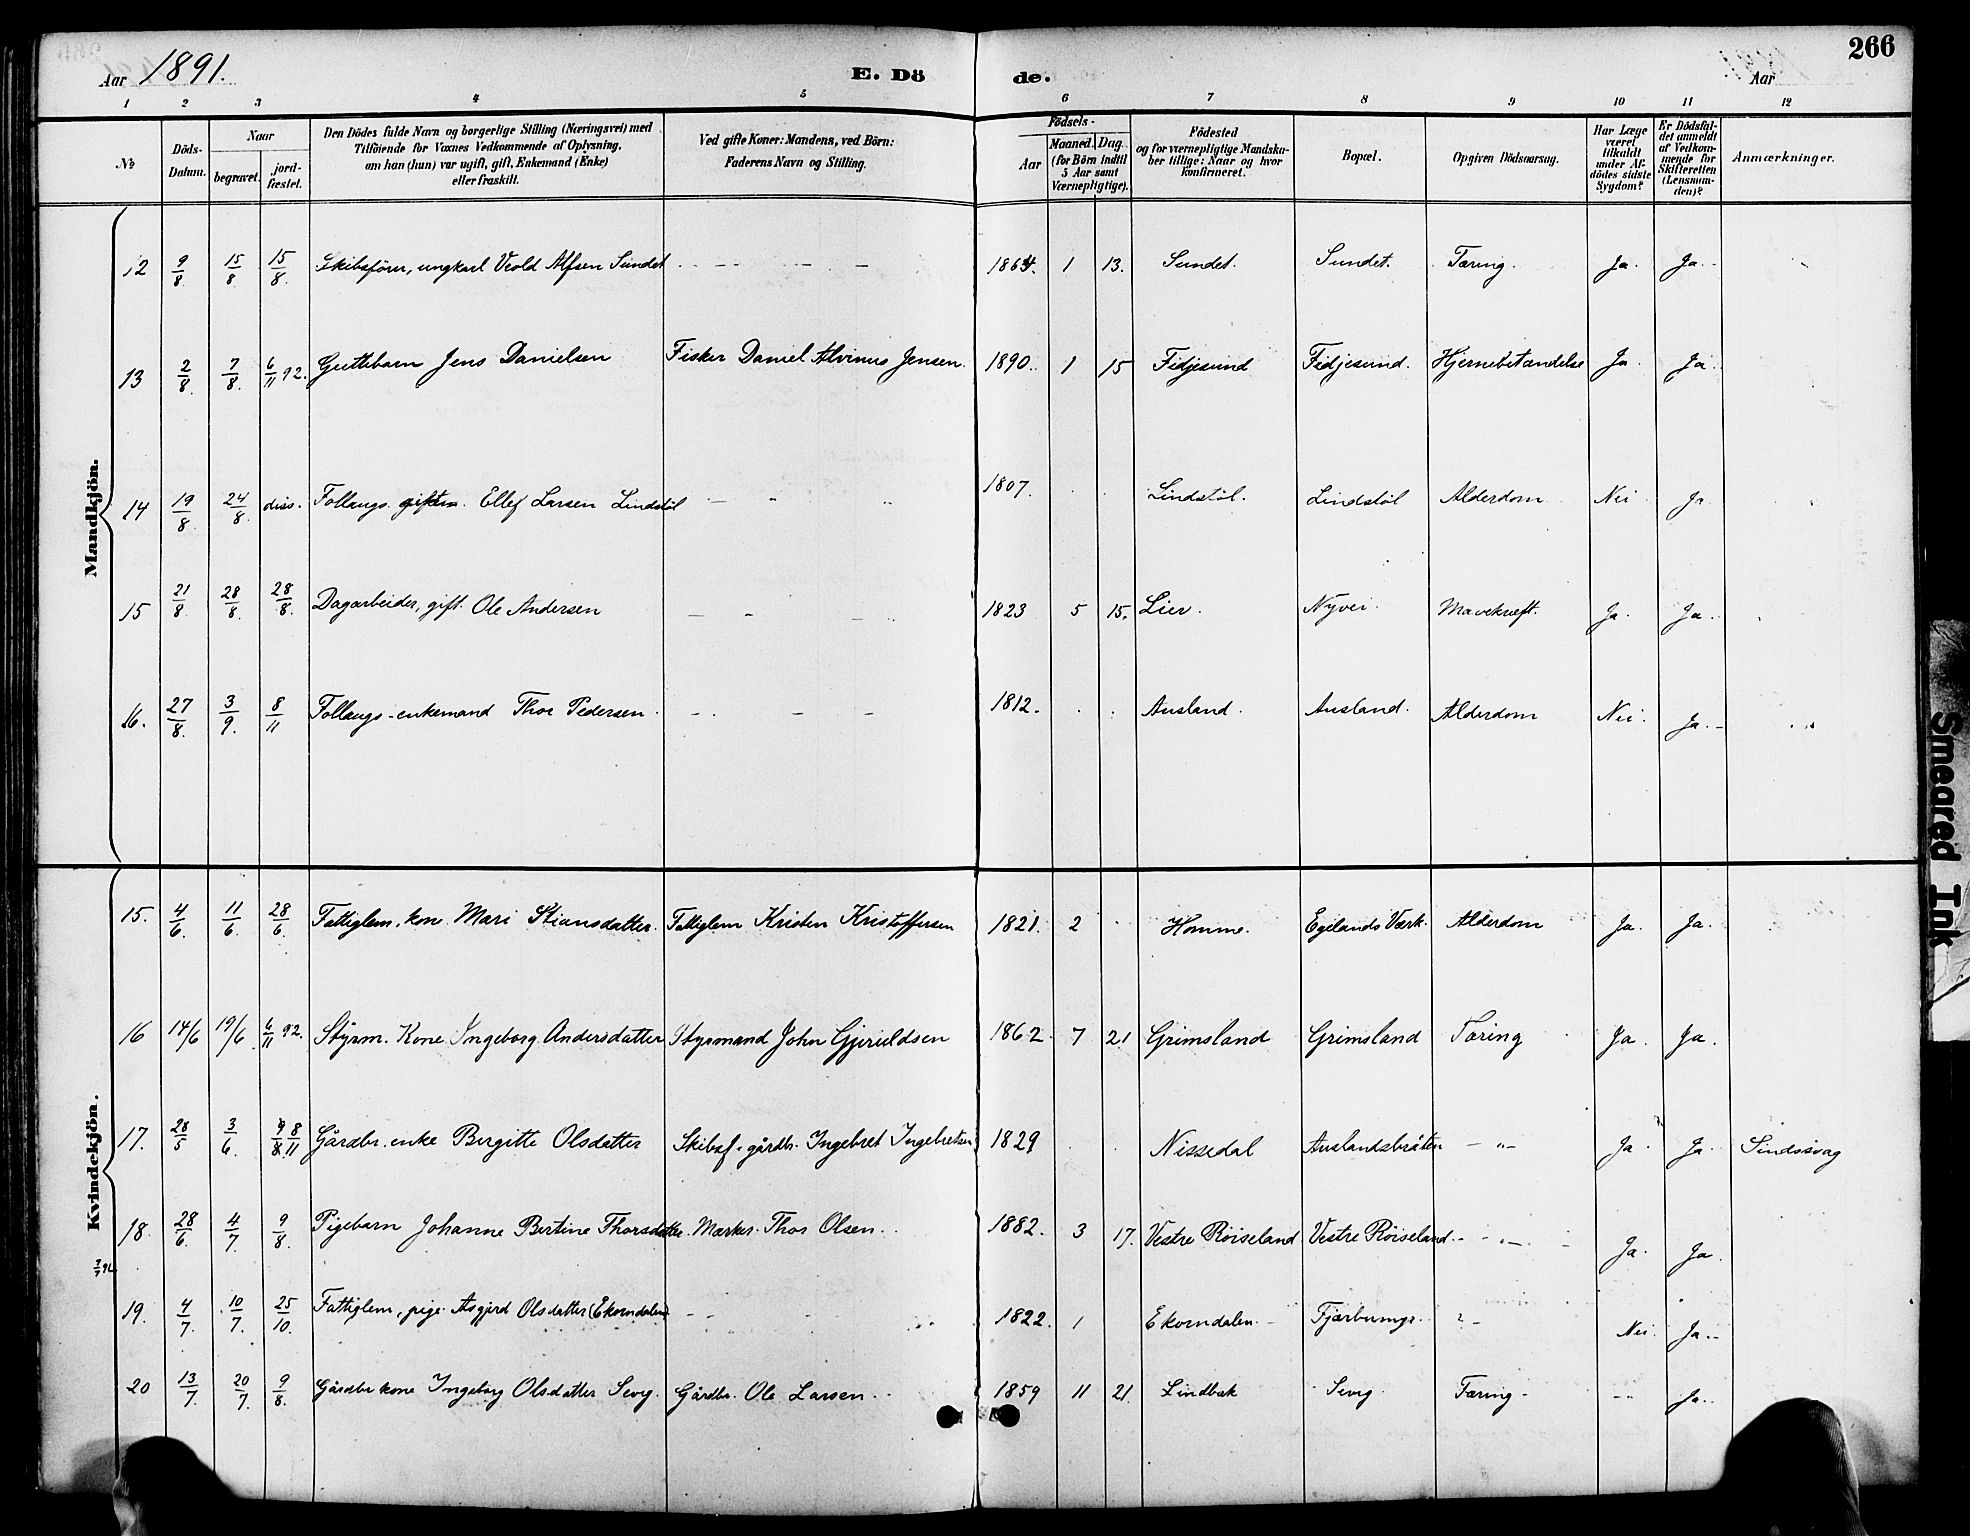 266
Aar 1891. E. Dö de. Aar
1 2 3 4 5 6 7 8 9 10 11 12
No
Döds-Datum.
Naar begravet. jordfæstet.
Den Dödes fulde Navn og borgerlige Stilling (Næringsvei) med
Tilföiende for Voxnes Vedkommende af Oplysning,
om han (hun) var ugift, gift, Enkemand (Enke)
eller fraskilt.
Ved gifte Koner: Mandens, ved Börn:
Faderens Navn og Stilling.
Födsels-
Aar Maaned. Dag.
(for Börn indtil
5 Aar samt
Værnepligtige).
Födested
og for værnepligtige Mandska-
ber tillige: Naar og hvor
konfirmeret.
Bopæl.
Opgiven Dödsaarsag.
Har Læge
været
tilkaldt
under Af-
dödes sidste
Sygdom?
Er Dödsfal-
det anmeldt
af Vedkom-
mende for
Skifteretten
(Lensman-
den)?
Anmærkninger.
Mandkjön.
12 9/8 15/8 15/8. Skibsförer, ungkarl Alfsen Sundet - - - - 1864. 1 13. Sundet. Sundet. Tæring. Ja. Ja.
13 2/8 7/8. 6/11 92. Guttebarn Jens Danielsen Fisker Daniel Alvinus Jensen. 1890. 1 15 Fidjesund Fidjesund. Hjernebetændelse Ja. Ja.
14 19/8. 24/8. diss. Follaugs. giftm. Ellef Larsen Lindstöl 1807. Lindstöl. Lindstöl Alderdom Nei Ja
15 21/8 28/8. 28/8. Dagarbeider, gift. Ole Andersen - - - 1823 5 15. Lier. Nyvei. Mavekræft. Ja. Ja.
16. 27/8. 3/9. 8/11 Follaugs-enkemand Thor Pedersen. - - - 1812. Ausland. Ausland. Alderdom Nei. Ja.
Kvindekjön.
15. 4/6 11/6 28/6. Fattiglem, kone Mari Stiansdatter. Fattiglem Kristen Kristoffersen 1821. 2 Homme. Egelands Værk. Alderdom Ja. Ja.
16 14/6 19/6 6/11 92. Styrm. Kone Ingeborg Andersdatter Styrmand John Gjeruldsen 1862. 7 21 Grimsland Grimsland Tæring Ja. Ja.
17. 28/5 3/6. 8/11 Gårdbr. enke Birgitte Olsdatter Skibsf. gårdbr. Ingebret Ingebretsen 1829 Nissedal Auslandsbråten - " - Ja Ja. Sindssvag
18. 28/6. 4/7. 9/8. Pigebarn Johanne Bertine Thorsdatter. Thor Olsen. 1882. 3 17. Vestre Röiseland Vestre Röiseland - " - Ja. Ja.
19. 4/7. 10/7. 25/10. Fattiglem, pige Asgjerd Olsdatter (Ekorndalen) - - 1822. 1 Ekorndalen. Nei. Ja.
20 13/7. 20/7. 9/8. Gårdbr kone Ingeborg Olsdatter Sevig. Gårdbr. Ole Larsen. 1859 11 21. Lindbæk Sevig. Tæring - - Ja.
Smeared Ink